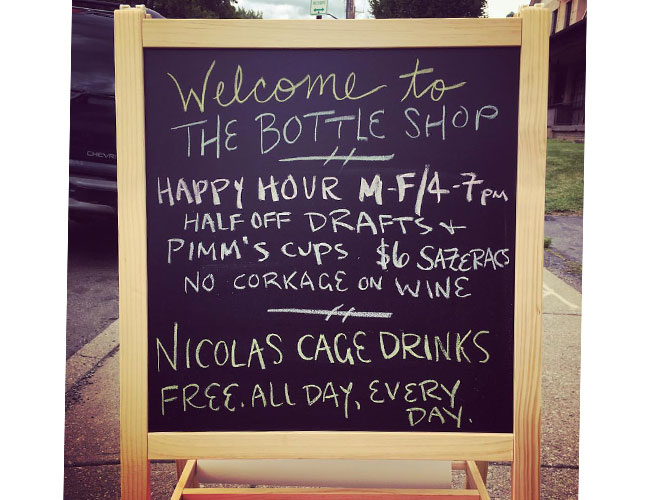 Welcome to
THE BOTTLE SHOP
HAPPY HOUR M-F/4-7PM
HALF OFF DRAFTS +
PIMM'S CUPS $6 SAZERACS
NO CORKAGE ON WINE
NICOLAS CAGE DRINKS
FREE. ALL DAY, EVERY
DAY.
CHEVROLET